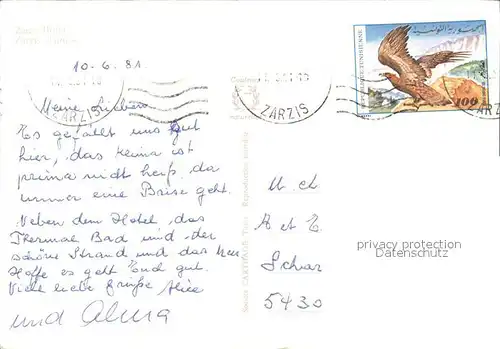 10.6.81
ZARZIS
ZARZIS
REPUBLIQUE TUNISIENNE
الجمهورية التونسية
100
Meine Lieben
Es gefällt uns gut
hier, das Klima ist
prima nicht heiß, da
immer eine Brise geht.
Neben dem Hotel, das
Thermal Bad und der
schöne Strand und das Meer
Hoffe es geht Euch gut.
Viele liebe Grüße Alice
und Alma
A et E
5430
privacy protection
Datenschutz